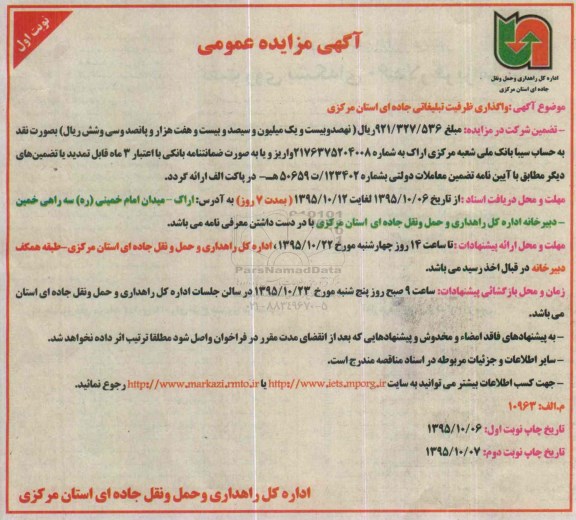 نوبت اول
آگهی مزایده عمومی
اداره کل راهداری و حمل و نقل
جاده ای استان مرکزی
موضوع آگهی :واگذاری ظرفیت تبلیغاتی جاده ای استان مرکزی
- تضمین شرکت در مزایده: مبلغ ۹۲۱/۳۲۷/۵۳۶ریال ( نهصدوبیست و یک میلیون و سیصد و بیست و هفت هزار و پانصد وسی وشش ریال) بصورت نقد
به حساب سیبا بانک ملی شعبه مرکزی اراک به شماره ۲۱۷۶۳۷۵۲۰۴۰۰۸واریز و یا به صورت ضمانتنامه بانکی با اعتبار ۳ ماه قابل تمدید یا تضمین‌های
دیگر مطابق با آیین نامه تضمین معاملات دولتی بشماره ۱۲۳۴۰۲/ت ۵۰۶۵۹ هـ- در پاکت الف ارائه گردد.
مهلت و محل دریافت اسناد :از تاریخ ۱۳۹۵/۱۰/۰۶ لغایت ۱۳۹۵/۱۰/۱۲ ( بمدت ۷ روز) به آدرس: اراک - میدان امام خمینی (ره) سه راهی خمین
- دبیرخانه اداره کل راهداری و حمل ونقل جاده ای استان مرکزی با در دست داشتن معرفی نامه می باشد.
مهلت و محل ارائه پیشنهادات :تا ساعت ۱۴ روز چهارشنبه مورخ ۱۳۹۵/۱۰/۲۲ ، اداره کل راهداری و حمل و نقل جاده ای استان مرکزی-طبقه همکف
دبیرخانه در قبال اخذ رسید می باشد.
ParsNamadData
زمان و محل بازگشائی پیشنهادات: ساعت ۹ صبح روز پنج شنبه مورخ ۱۳۹۵/۱۰/۲۳ در سالن جلسات اداره کل راهداری و حمل ونقل جاده ای استان
می باشد.
۰۲۱-۸۸۳۴۹۶۷۰-۵
- به پیشنهادهای فاقد امضاء و مخدوش و پیشنهادهایی که بعد از انقضای مدت مقرر در فراخوان واصل شود مطلقا ترتیب اثر داده نخواهد شد.
- سایر اطلاعات و جزئیات مربوطه در اسناد مناقصه مندرج است.
- جهت کسب اطلاعات بیشتر می توانید به سایت http://www.iets.mporg.ir یا http://www.markazi.rmto.ir رجوع نمائید.
م.الف: ۱۰۹۶۳
تاریخ چاپ نوبت اول: ۱۳۹۵/۱۰/۰۶
تاریخ چاپ نوبت دوم: ۱۳۹۵/۱۰/۰۷
اداره کل راهداری وحمل ونقل جاده ای استان مرکزی